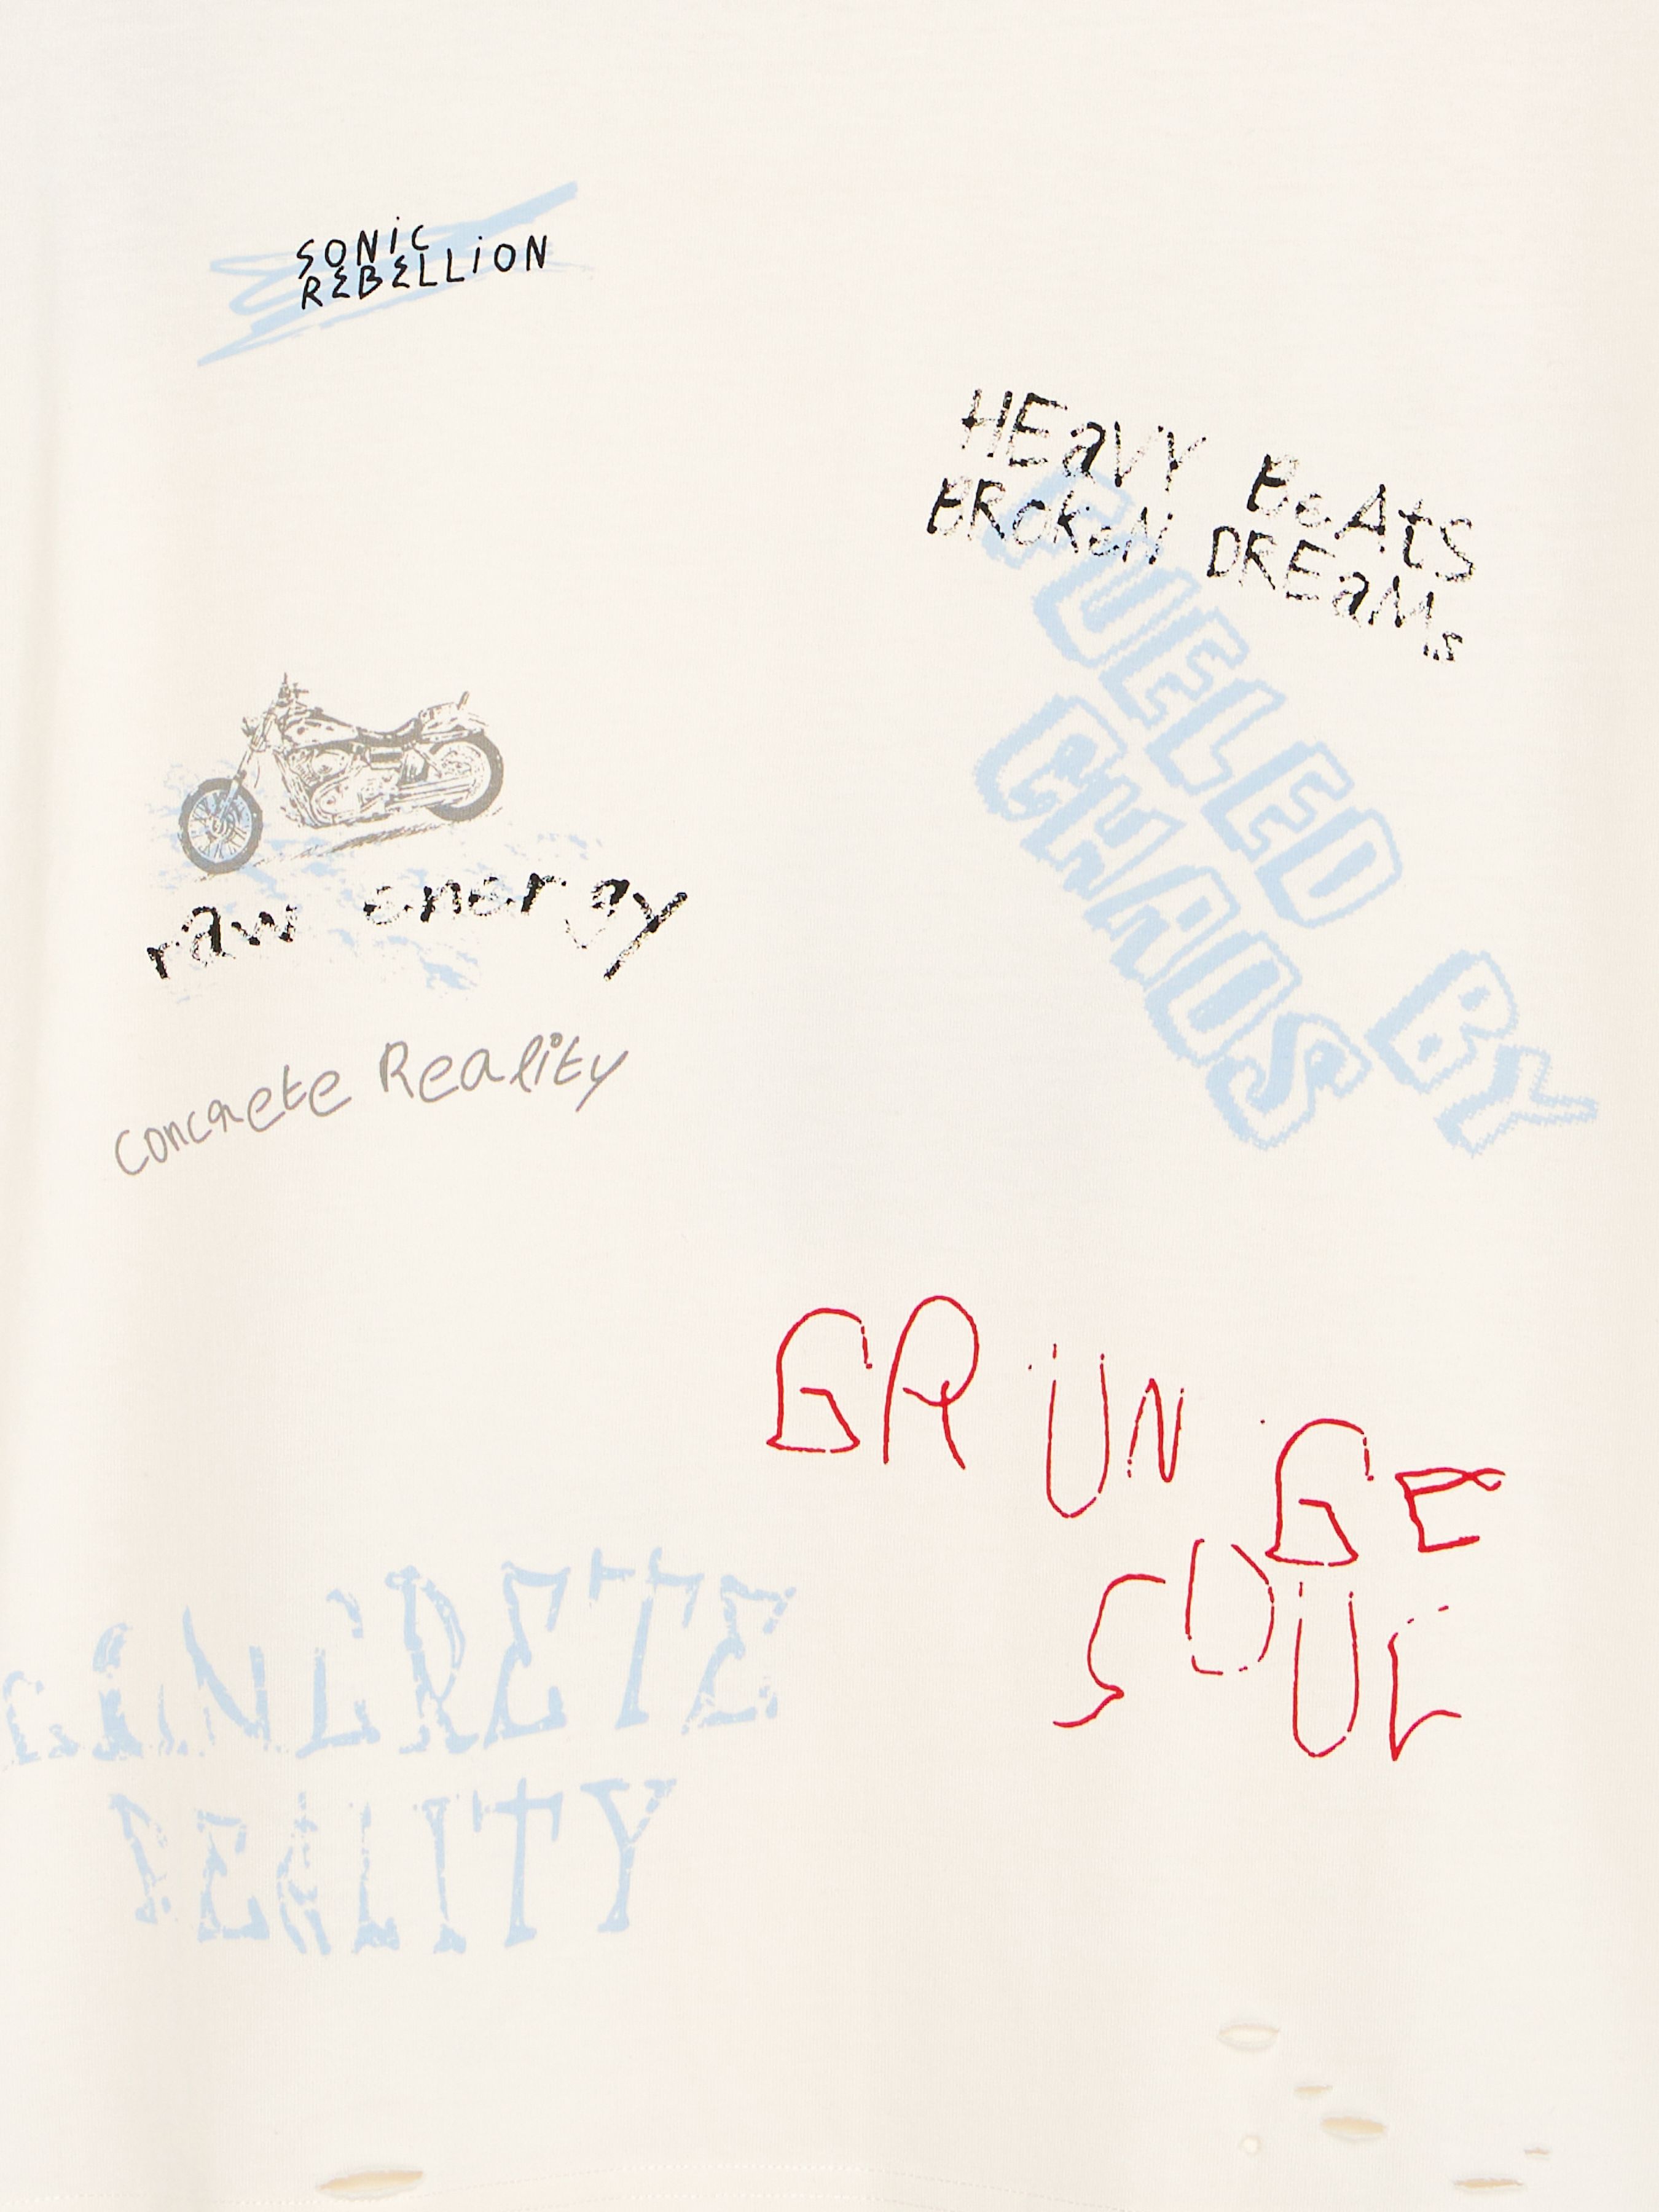 SONiC
REBELLiON
HEaVY BeAtS
BROKeN DREaMs
FUELED BY
CHAOS
raw energy
Concrete Reality
GRUNGE
SOUL
CONCRETE
REALITY